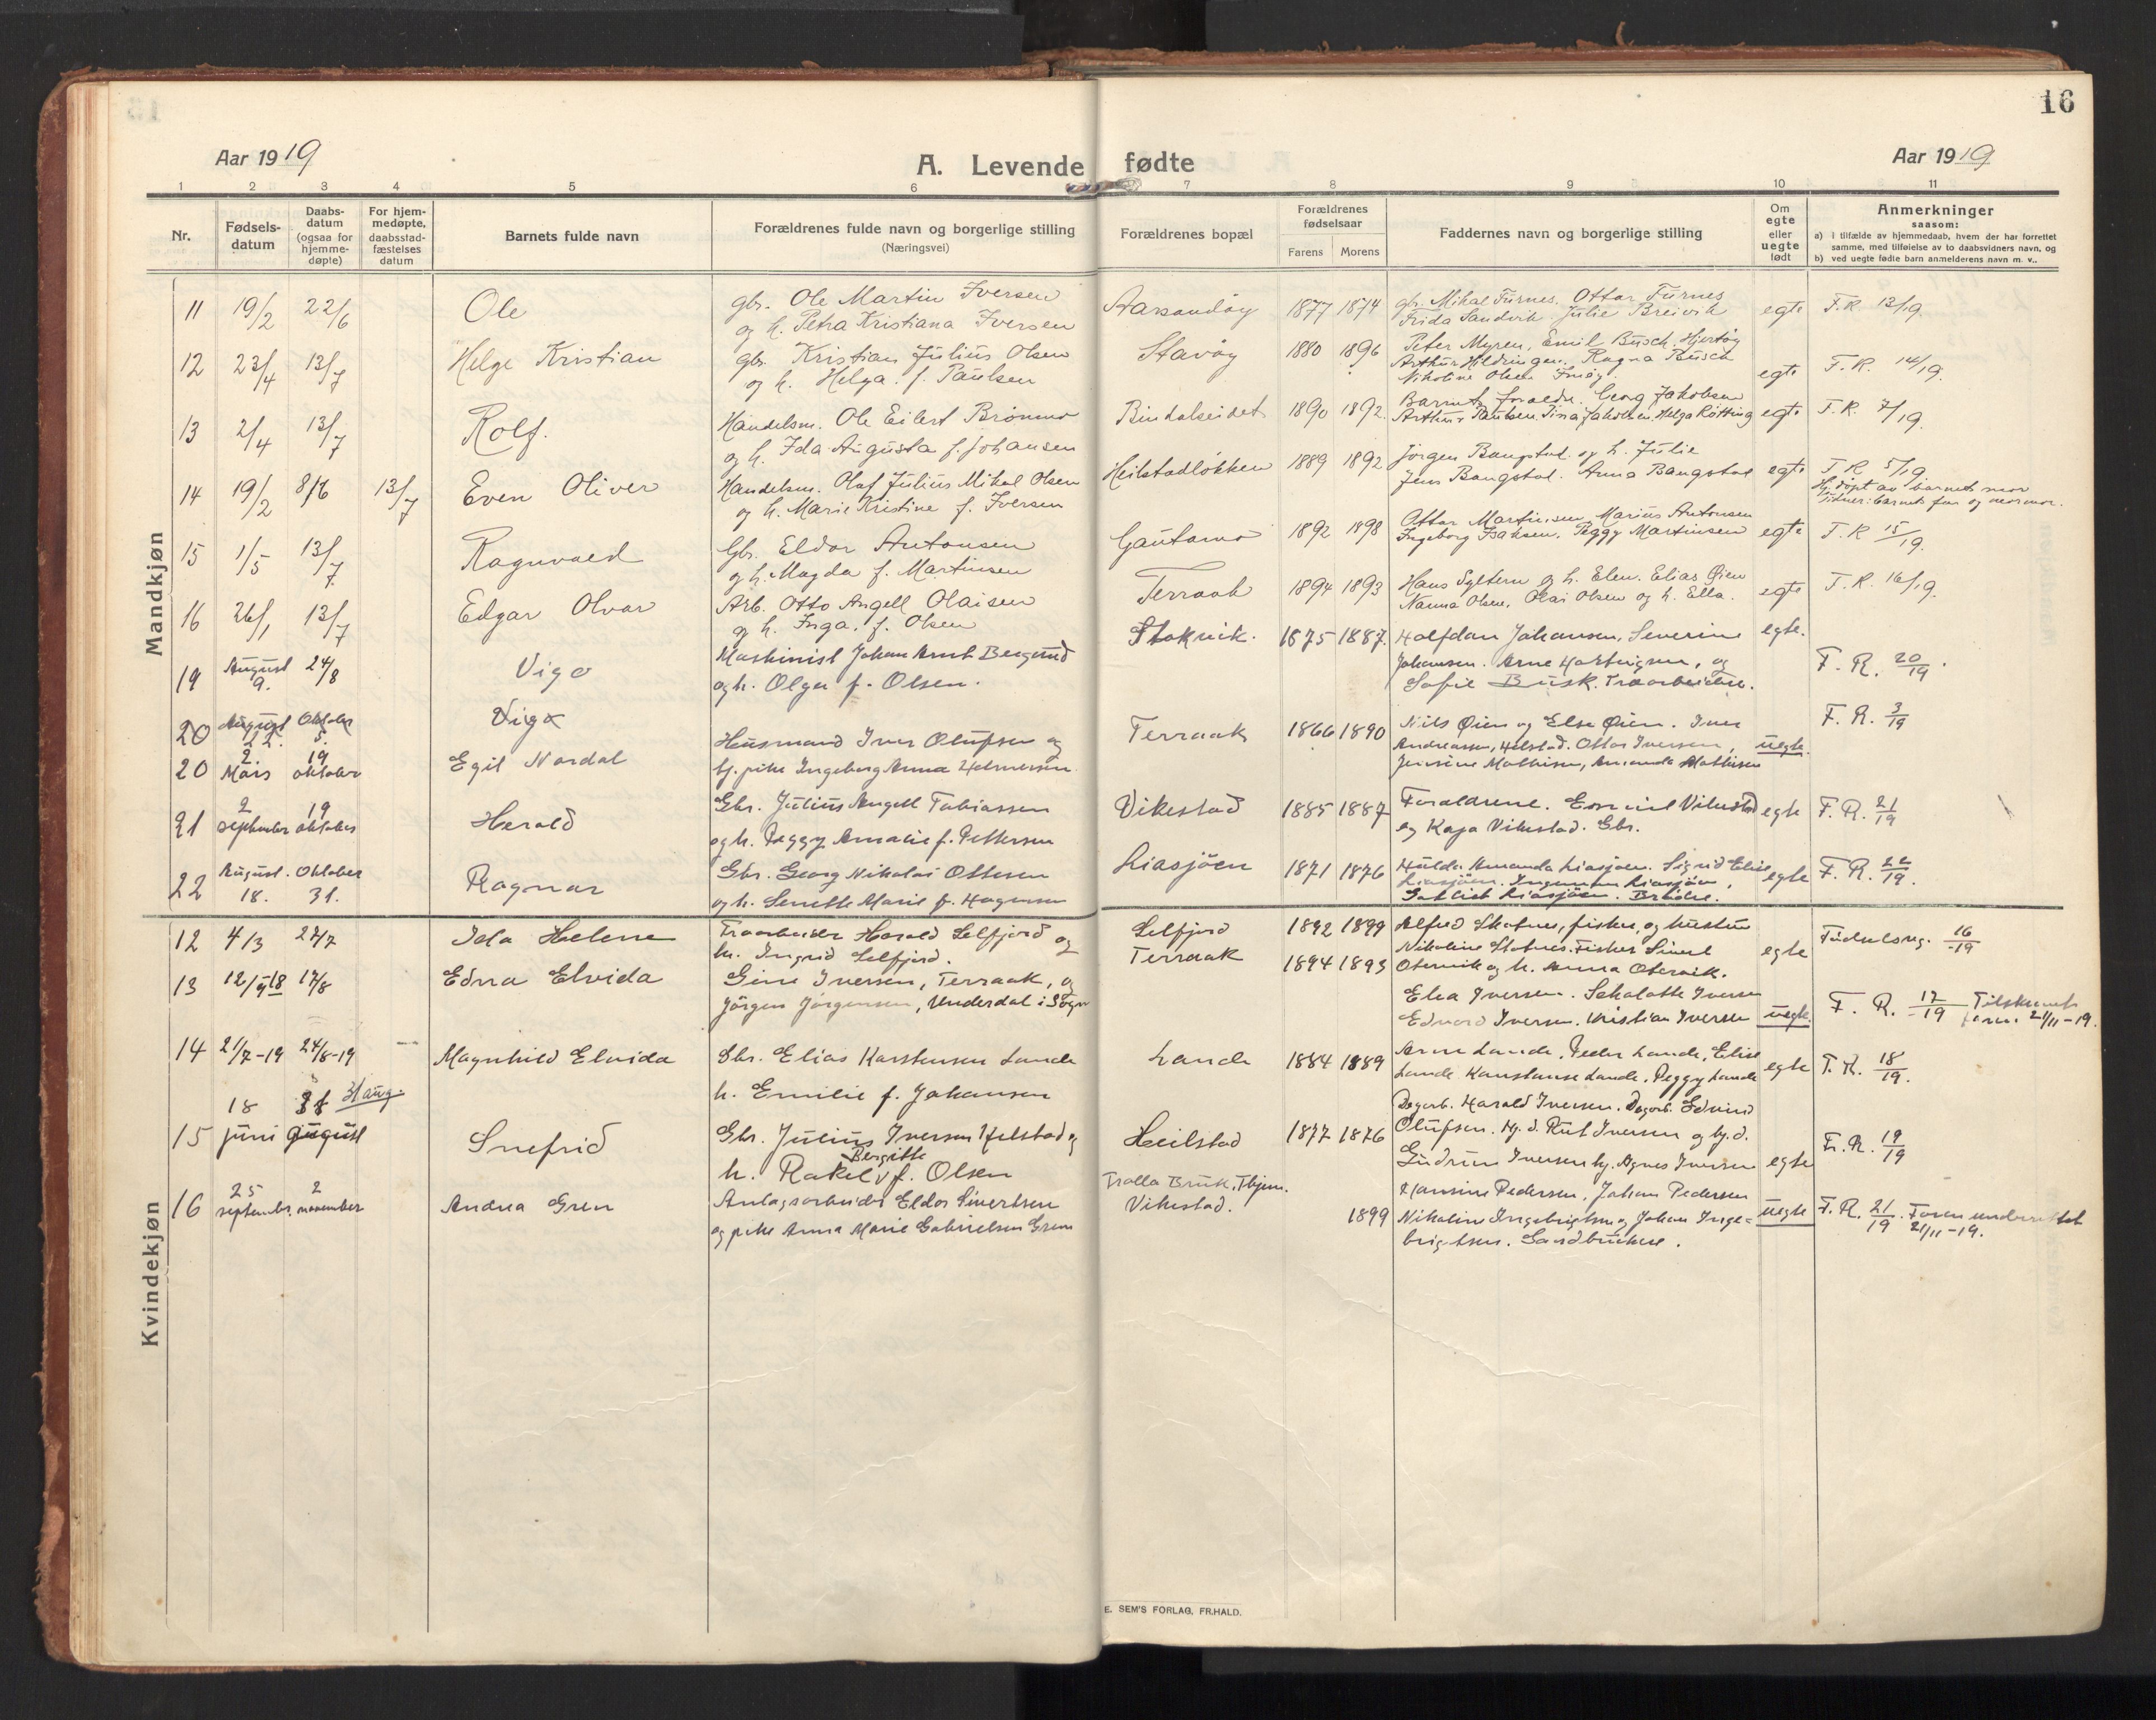 16
Aar 1919
A. Levende fødte
Aar 1919
1 2 3 4 5 6 7 8 9 10 11
Nr.
Fødsels-
datum
Daabs-
datum
(ogsaa for
hjemme-
døpte)
For hjem-
medøpte,
daabsstad-
fæstelses
datum
Barnets fulde navn
Forældrenes fulde navn og borgerlige stilling
(Næringsvei)
Forældrenes bopæl
Forældrenes
fødselsaar
Farens Morens
Faddernes navn og borgerlige stilling
Om
egte
eller
uegte
født
Anmerkninger
saasom:
a) i tilfælde av hjemmedaab, hvem der har forrettet
samme, med tilføielse av to daabsvidners navn, og
b) ved uegte fødte barn anmelderens navn m. v..
Mandkjøn
11 19/2 22/6 Ole
gbr. Ole Martin Iversen
og h. Petra Kristiana Iversen
Aarsandøy 1877 1874
gbr. Mikal Furnes. Ottar Furnes
Frida Sandvik. Julie Breivik
egte F.R. 13/19.
12 23/4 13/7 Helge Kristian
gbr. Kristian Julius Olsen
og h. Helga. f. Paulsen
Stavøy 1880 1896
Peter Myren, Emil Busch. Hjortøy
Arthur Hildringen. Ragna Busch
Nikoline Olsen
egte F.R. 14/19.
13 2/4 13/7 Rolf.
Handelsm. Ole Eilert Brønmo
og h. Ida Augusta f. Johansen
Bindalseidet 1890 1892
Barnets foreldr. Georg Jakobsen
Arthur Paulsen. Tina Jakobsen. Helga Røtting
egte F.R. 7/19.
14 19/2 8/6 13/7 Even Oliver
Handelsm. Olaf Julius Mikal Olsen
og h. Marie Kristine f. Iversen
Heilstadløkken 1889 1892
Jørgen Bangstad og h. Julie
Jens Bangstad. Anna Bangstad
egte F.R. 5/19.
Hj. døpt av barnets mor
Vidner: barnets far og mormor.
15 1/5 13/7 Ragnvald
Gbr. Eldor Antonsen
og h. Magda f. Martinsen
Gautamo 1892 1898
Ottar Martinsen Marius Antonsen
Ingeborg Isaksen, Peggy Martinsen
egte F.R 15/19.
16 26/1 13/7 Edgar Olvar
Arb. Otto Angell Olaisen
og h. Inga. f. Olsen
Terraak 1894 1893
Hans Syltern og h. Elen. Elias Øien
Nanna Olsen, Olai Olsen og h. Ella.
egte F.R. 16/19.
19 August 9. 24/8 Vigo
Maskinist Johan Arnt Berglund
og h. Olga f. Olsen.
Stokvik. 1875 1887.
Halfdan Johansen, Severine
Johansen. Arne Hartvigsen, og
Sofie Busk. Træarbeidere.
egte. F.R. 20/19.
20 August 22. Oktober 5. Vigo
F.R. 3/19
20 2 Mars 19 oktober Egil Nordal
Husmand Iver Olufsen og
tj. pike Ingeborg Anna Helmersen
Terraak 1866 1890
Nils Øien og Else Øien. Iver
Andreassen, Helstad. Ottar Iversen,
Jensine Mathisen, Amanda Mathisen
uegte.
21 2 september 19 oktober Harald
Gbr. Julius Angell Tobiassen
og h. Peggy Amalie f. Pettersen
Vikestad 1885 1887
Forældrene. Edvin Vikestad
og Kaja Vikestad. Gbr.
egte F.R. 21/19
22 August. 18. Oktober 31. Ragnar
Gbr. Georg Nikolai Ottesen
og h. Senette Marie f. Hagensen
Liasjöen 1871 1876
Hulda Amanda Liasjöen. Sigrid Elise
Liasjöen. Ingemann Liasjöen,
Gotlieb Liasjöen. Brødre.
egte F.R. 22/19.
Kvindekjøn
12 4/3 27/7 Ida Helene
Træarbeider Harald Selfjord og
h. Ingrid Selfjord.
Selfjord 1892 1899
Alfred Skotnes, fisker, og hustru
Nikoline Skotnes. Fisker Sivert
Otervik og h. Anna Otervik.
egte Fødselsreg. 16/-19
13 12/9 18 17/8 Edna Elvida
Gine Iversen, Terraak, og
Jörgen Jörgensen, Underdal i Sogn
Terraak 1894 1893
Elea Iversen. Sekolatte Iversen
Edvard Iversen. Kristian Iversen
uegte. F. R. 17/-19 Tilskrevet
faren 21/11-19.
14 21/7-19 24/8-19 Magnhild Elvida
Gbr. Elias Karstensen Lande
h. Emilie f. Johansen
Lande 1884 1889
Arne Lande, Peder Lande, Elise
Lande Konstanse Lande, Peggy Lande
egte F.R. 18/19.
31 aug.
15 18 juni 31 august Snefrid
Gbr. Julius Iversen Helstad og
h. Rakel Bergitte f. Olsen
Heilstad 1877 1876
Dagarb. Harald Iversen. Dagarb. Edvin
Olufsen. Hj. d. Rut Iversen og hj. d.
Gudrun Iversen hj. Agnes Iversen
egte F.R. 19/19
16 25 september. 2 november Andrea Gren
Anlægsarbeider Eldor Sivertsen
og pike Anna Marie Gabrielsen Grem
Trolla Bruk, Thjem.
Vikestad. 1899
Hansine Pedersen, Johan Pedersen
Nikoline Ingebrigtsen og Johan Inge-
brigtsen. Gardbrukere.
uegte F.R. 21/19. Faren underrettet
21/11-19.
E. SEM'S FORLAG, FR.HALD.